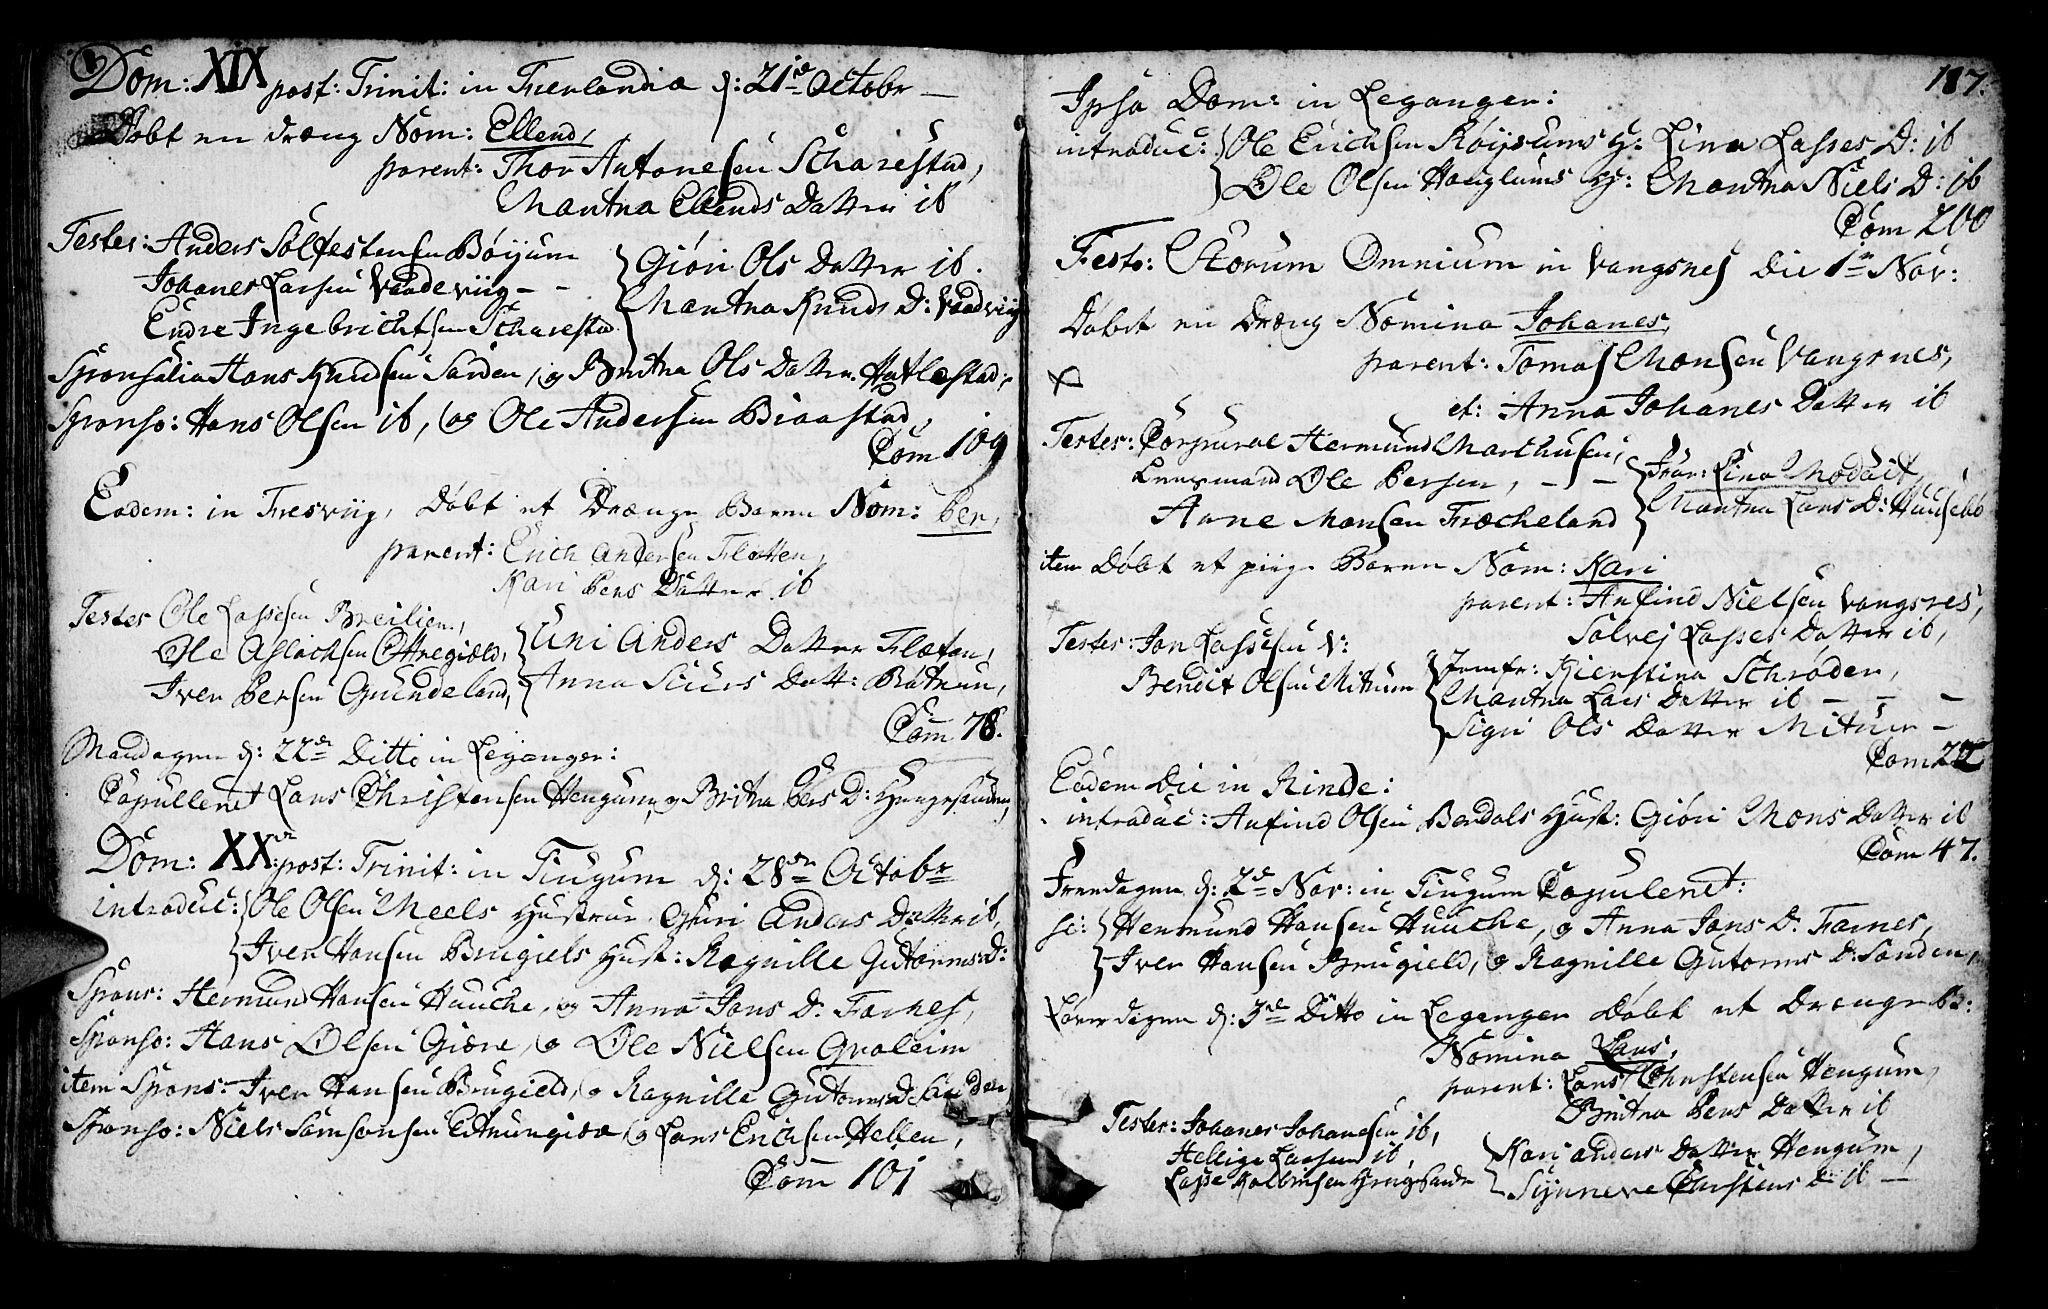 Dom: XIX post: Trinit: in Fierlandia d: 21de Octobr
Døbt en dræng Nom: Ellend,
parent: Thor Antonesen Scharestad,
Maritha Ellends Datter ib
Testes: Anders Solfestensen Bøijum
Johanes Larsen
Endre Ingebrichtsen Scharestad
Giøri Ols Datter ib.
Maritha Knuds D:
Sponsalia Hans Knudsen Sanden, og Britha Ols Datter Hatlestad,
Sponso: Hans Olsen ib, og Ole Andersen Biaastad,
Com 109
Eadem: in Fresviig, Døbt et Drænge Baren Nom: Per,
parent: Erich Andersen Fletten,
Kari Pers Datter ib
Testes Ole Lassesen Breilien,
Ole Aslachsen
Iver Persen Gundeland,
Uni Anders Datter
Anna Siurs Datt:
Com 78.
Mandagen d: 22de Ditto in Leganger:
Copulleret Lars Christensen Hengum, og Britha Pers D:
Dom: XX post: Trinit: in Tiugum d: 28de Octobr
introduc: Ole Olsen Meels Hustrue Guri Anders Datter ib,
Iver Hansen Brugiels Hust: Ragnille Gutorms D:
Spons: Hermund Hansen Hauche, og Anna Jons D: Farnes,
Sponso: Hans Olsen Giære, og Ole Nielsen Qvaleim
item Spons: Iver Hansen Brugield, og Ragnille Gutorms D: Sanden
Sponso: Niels Samsonsen og Lars Erichsen Hellen,
Com 101
187.
Ipsa Dom: in Leganger:
introduc: Ole Erichsen Røijsums H: Lina Lasses D: ib
Ole Olsen Hauglums H: Maritha Niels D: ib
Com 200
Festo: Storum Omnium in Vangsnes Die 1 Nov:
Døbt en Dræng Nomina Johanes,
parent: Tomas Monsen Vangsnes,
et: Anna Johanes Datter ib
Testes: Corpural Hermund Marthusen,
Lensmand Ole Persen,
Arne Monsen Fræcheland
Lina
Maritha Lars D: Huusebø
item Døbt et pige Baren Nom: Kari
parent: Anfind Nielsen Vangsnes,
Solvej Lasses Datter ib,
Testes: Jon Lassesen V:
Bendit Olsen Mitum
Jomfr: Kierstina Schrøder,
Maritha Lars Datter ib
Sigri Ols Datter
Com 22
Eodem Die in Rinde:
introduc: Anfind Olsen Berdals Hust: Giøri Mons Datter ib
Com 47.
Fredagen d: 2de Nov: in Tiugum Copuleret:
sc: Hermund Hansen Hauche, og Anna Jons D: Farnes,
Iver Hansen Brugield, og Ragnille Gutorms D: Sanden,
Løverdagen d: 3de Ditto in Leganger Døbt et Drænge B:
Nomina Lars,
parent: Lars Christensen Hengum,
Britha Pers Datter ib
Testes: Johanes Johanesen ib,
Hellige Larsen ib,
Lasse
Kari Anders Datter Hengum,
Synneve Christens D: ib